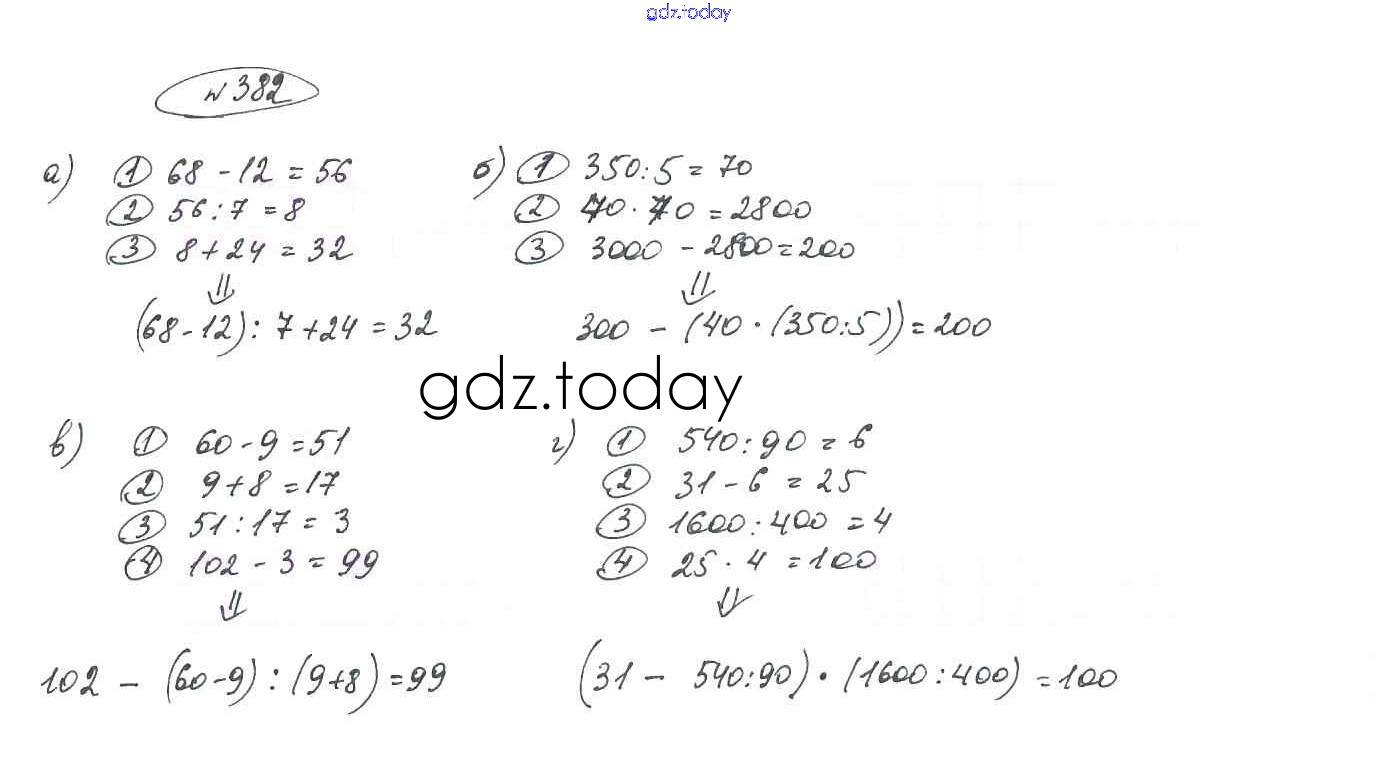 gdz.today
№ 382
а) ① 68 - 12 = 56
② 56 : 7 = 8
③ 8 + 24 = 32
⇓
(68 - 12) : 7 + 24 = 32
б) ① 350 : 5 = 70
② 40 · 70 = 2800
③ 3000 - 2800 = 200
⇓
300 - (40 · (350 : 5)) = 200
gdz.today
в) ① 60 - 9 = 51
② 9 + 8 = 17
③ 51 : 17 = 3
④ 102 - 3 = 99
⇓
102 - (60 - 9) : (9 + 8) = 99
г) ① 540 : 90 = 6
② 31 - 6 = 25
③ 1600 : 400 = 4
④ 25 · 4 = 100
⇓
(31 - 540 : 90) · (1600 : 400) = 100